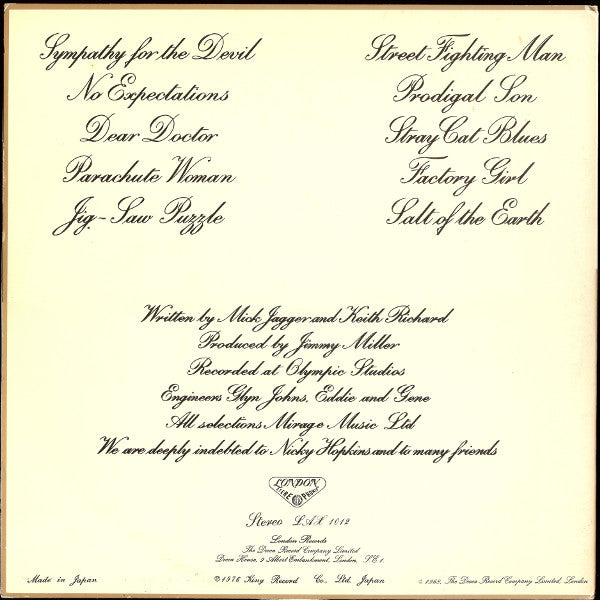 Sympathy for the Devil
No Expectations
Dear Doctor
Parachute Woman
Jig-Saw Puzzle
Street Fighting Man
Prodigal Son
Stray Cat Blues
Factory Girl
Salt of the Earth
Written by Mick Jagger and Keith Richard
Produced by Jimmy Miller
Recorded at Olympic Studios
Engineers Glyn Johns, Eddie and Gene
All selections Mirage Music Ltd
We are deeply indebted to Nicky Hopkins and to many friends
LONDON
Stereo LAX 1012
London Records
The Decca Record Company Limited
Decca House, 9 Albert Embankment, London, S.E.1.
Made in Japan
℗ 1976 King Record Co. Ltd. Japan
© 1968, The Decca Record Company Limited, London